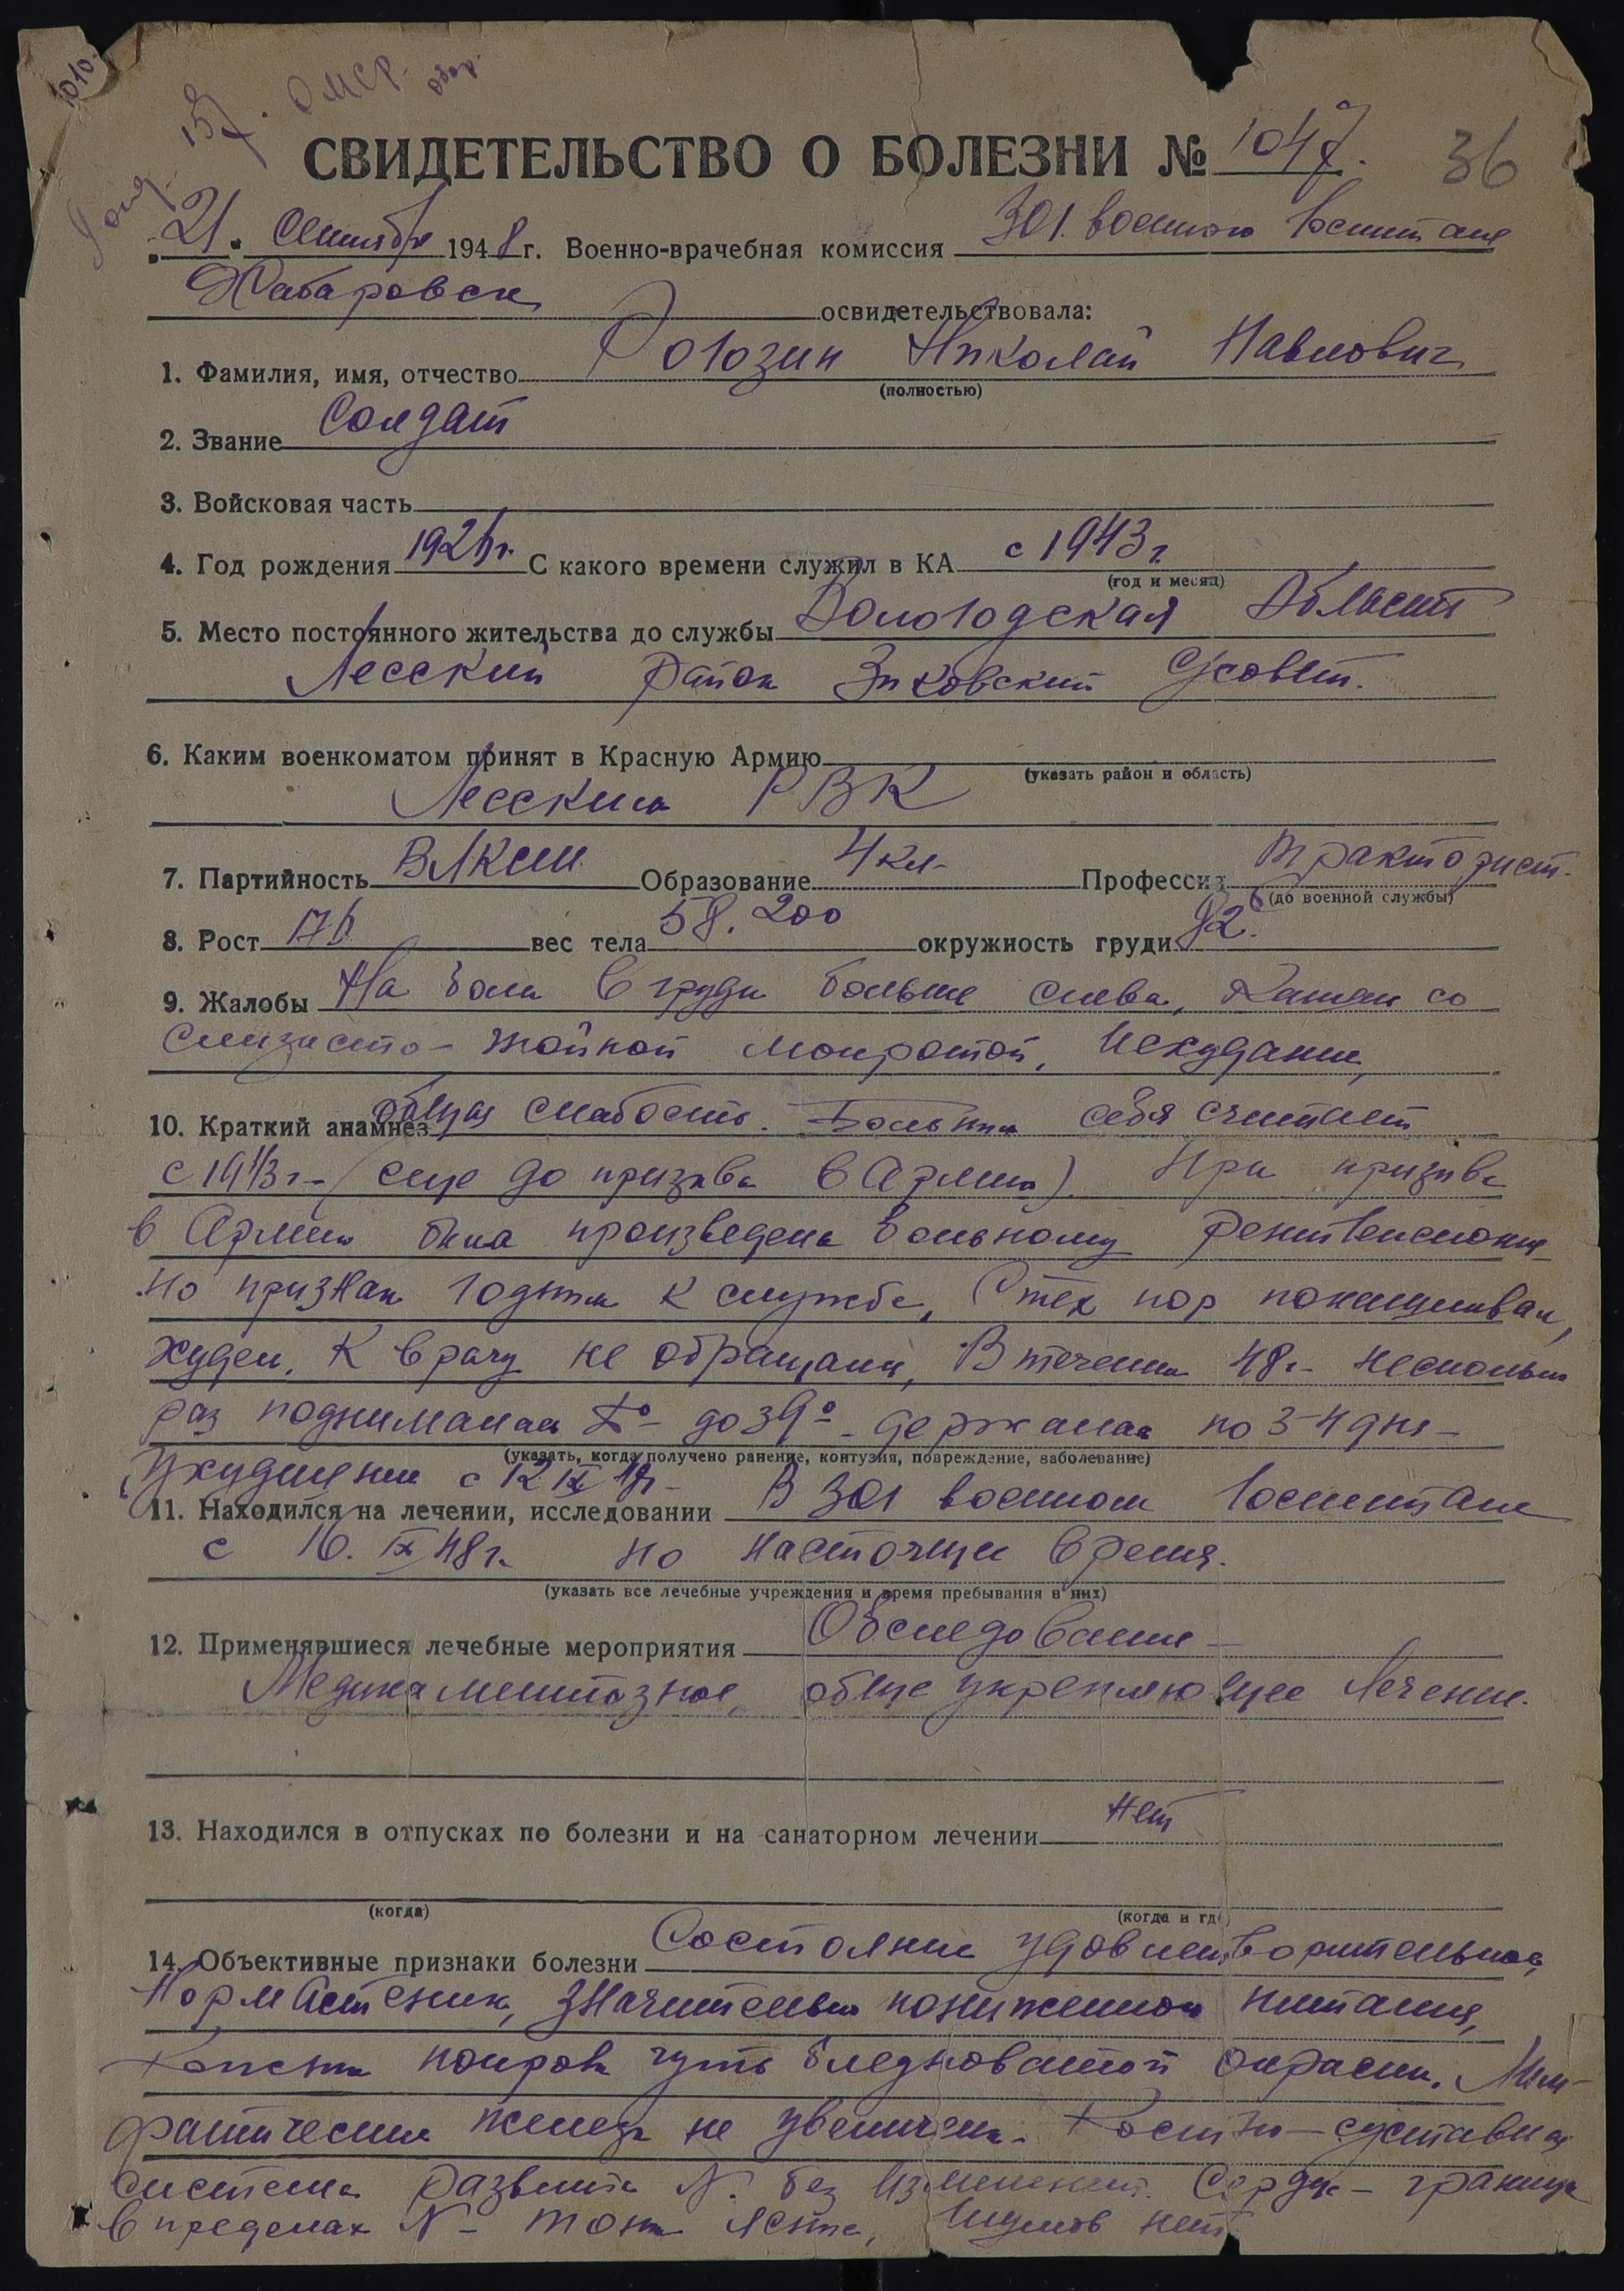 1010.
137. ОМСР.
СВИДЕТЕЛЬСТВО О БОЛЕЗНИ № 1047.
36
„21“ Сентября 1948 г. Военно-врачебная комиссия 301 военного Госпиталя
Хабаровск освидетельствовала:
1. Фамилия, имя, отчество Рогозин Николай Павлович
(полностью)
2. Звание Солдат
3. Войсковая часть
4. Год рождения 1926г. С какого времени служил в КА с 1943 г.
(год и месяц)
5. Место постоянного жительства до службы Вологодская Область
Лесский район Зыковский С/совет.
6. Каким военкоматом принят в Красную Армию
(указать район и область)
Лесским РВК
7. Партийность ВЛКСМ Образование 4 кл. Профессия Тракторист.
(до военной службы)
8. Рост 176 вес тела 58.200 окружность груди 92.
9. Жалобы На боли в груди больше слева, Кашель со
слизисто-гнойной мокротой, Исхудание,
10. Краткий анамнез общая слабость. Больным себя считает
с 1943 г. (еще до призыва в Армию). При призыве
в Армию была произведена больному рентгеноскопия
но признан годным к службе. С тех пор покашливал,
худел. К врачу не обращался, В течении 48г. несколько
раз поднималась t° до 39° держалась по 3-4 дня
(указать, когда получено ранение, контузия, повреждение, заболевание)
Ухудшение с 12 IX 48г.
11. Находился на лечении, исследовании В 301 военном Госпитале
с 16. IX 48 г. по настоящее время.
(указать все лечебные учреждения и время пребывания в них)
12. Применявшиеся лечебные мероприятия Обследование
Медикаментозное, обще укрепляющее лечение.
13. Находился в отпусках по болезни и на санаторном лечении нет
(когда) (когда и где)
14. Объективные признаки болезни Состояние удовлетворительное,
Нормастеник, значительно пониженного питания,
Кожные покровы чуть бледноватой окраски. Лим-
фатические железы не увеличены. Костно-суставная
система развита N. без изменений. Сердце - границы
в пределах N - тоны ясные, Шумов нет